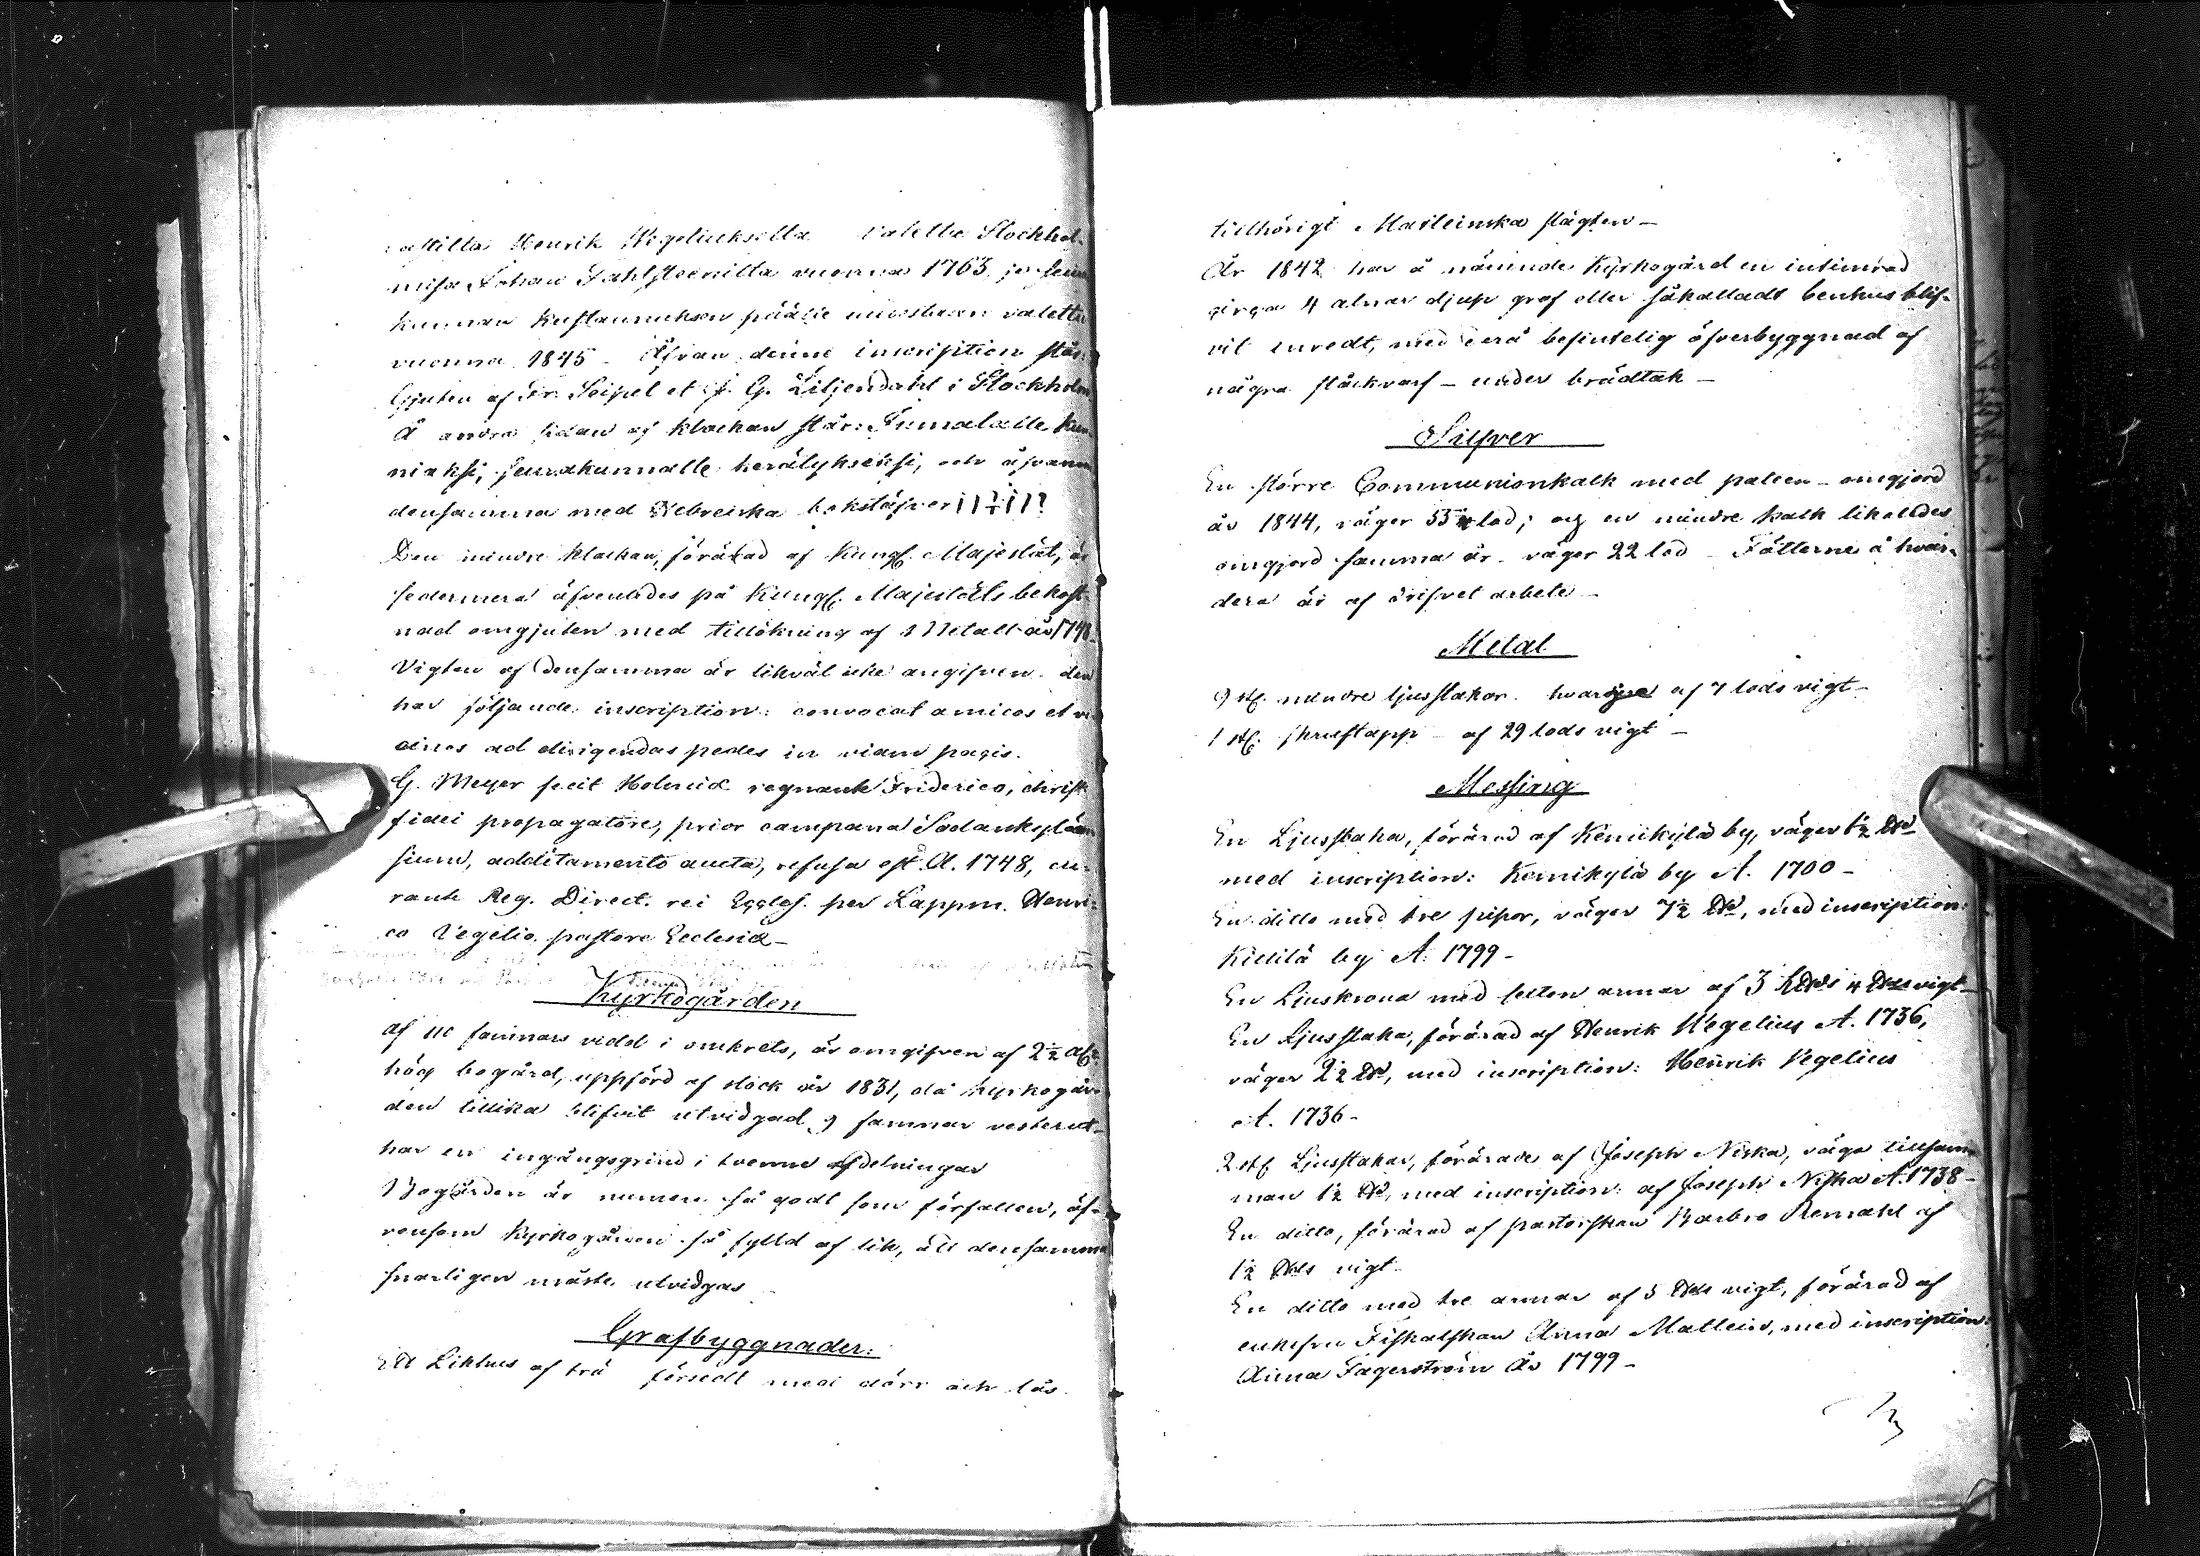 Henrik Wegeliukselta valettu Stockhol-
misa Johan Fahlsteenilta vuonna 1763, ja seura
kunnan kustannuksen päälle uudestaan valettu
vuonna 1845 - Ofvan denne inscription står:
Gjuten af Fr. Seipel et J. G. Liljendahl i Stockholm
Å andra sidan af klockan står: Jumalalle kun
niaksi, seurakunnalle herätykseksi, och ofvanom
densamma med Hebreiska bokstäfver יהוה
Den mindre klockan, förärad af Kungl. Majestät, är
sedermera äfvenledes på Kungl. Majestäts bekost-
nad omgjuten med tillökning af Metall år 1748.
Vigten af densamma är likväl icke angifven. den
har följande inscription: convocat amicos et vi
cinos ad dirigendas pedes in viam pacis.
G. Meyer fecit Holmiæ regnante Friderico, christ.
fidei propagatore, prior campana Sodankylän
sium, additamento aucta, refusa est A. 1748, cu-
rante Reg. Direct. rei Eccles. per Lappm. Henri-
co Vegelio, pastore Ecclesiæ -
Kyrkogården
af 110 famnars vidd i omkrets, är omgifven af 2½ aln
hög bogård, uppförd af stock år 1831, då kyrkogår
den tillika blifvit utvidgad 9 famnar vesterut-
har en ingångsgrind i tvenne afdelningar
Bogården är numera så godt som förfallen, äf-
vensom kyrkogården så fylld af lik, att densamma
snarligen måste utvidgas
Grafbyggnader:
Ett Likhus af trä försedt med dörr och lås
tillhörigt Matleinska slägten -
År 1842 har å nämnde Kyrkogård en intimrad
circa 4 alnar djup graf eller såkalladt benhus blif-
vit inredt, med derå befintelig öfverbyggnad af
några stockvarf - under brädtak -
Silfver
En större Communionkalk med paten - omgjord
år 1844, väger 53 lod; och en mindre kalk likaledes
omgjord samma år - väger 22 lod - Fötterne å hvar-
dera är af drifvet arbete -
Metal
9 st. mindre ljusstakar. hvarje af 7 lods vigt -
1 st. skruftapp - af 29 lods vigt -
Messing
En Ljusstaka, förärad af Kemikylä by, väger 1½ ℔
med inscription: Kemikylä by A. 1700 -
En ditto med tre pipor, väger 7½ ℔, med inscription:
Kittilä by A. 1799 -
En Ljuskrona med sexton armar af 3 L℔s 4 ℔s vigt -
En Ljusstaka, förärad af Henrik Wegelius A. 1736,
väger 2½ ℔, med inscription: Henrik Vegelius
A. 1736 -
2 st Ljusstakar, förärade af Joseph Niska, väga tillsam
man 1½ ℔, med inscription: af Joseph Niska A. 1738 -
En ditto, förärad af pastorskan Barbro Remahl af
1½ ℔s vigt -
En ditto med tre armar af 5 ℔s vigt, förärad af
enkefru Fiskalskan Anna Mattlein, med inscription:
Anna Fagerström År 1799 -